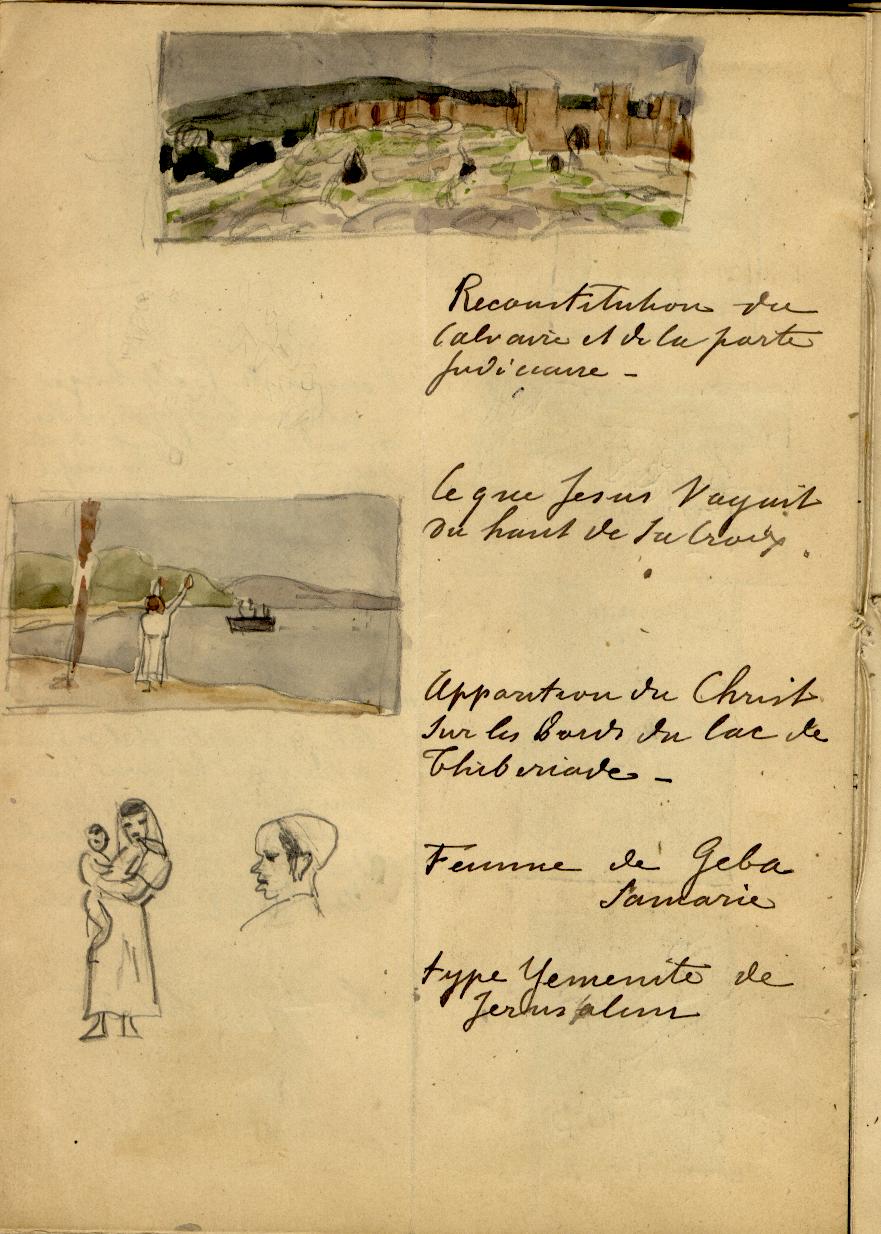 Reconstitution du
Calvaire et de la porte
Judiciaire -
Ce que Jesus Voyait
Du haut de Sa Croix.
Apparition du Christ
Sur les Bords du lac de
Thiberiade -
Femme de Geba
Samarie
type Yemenite de
Jerusalem